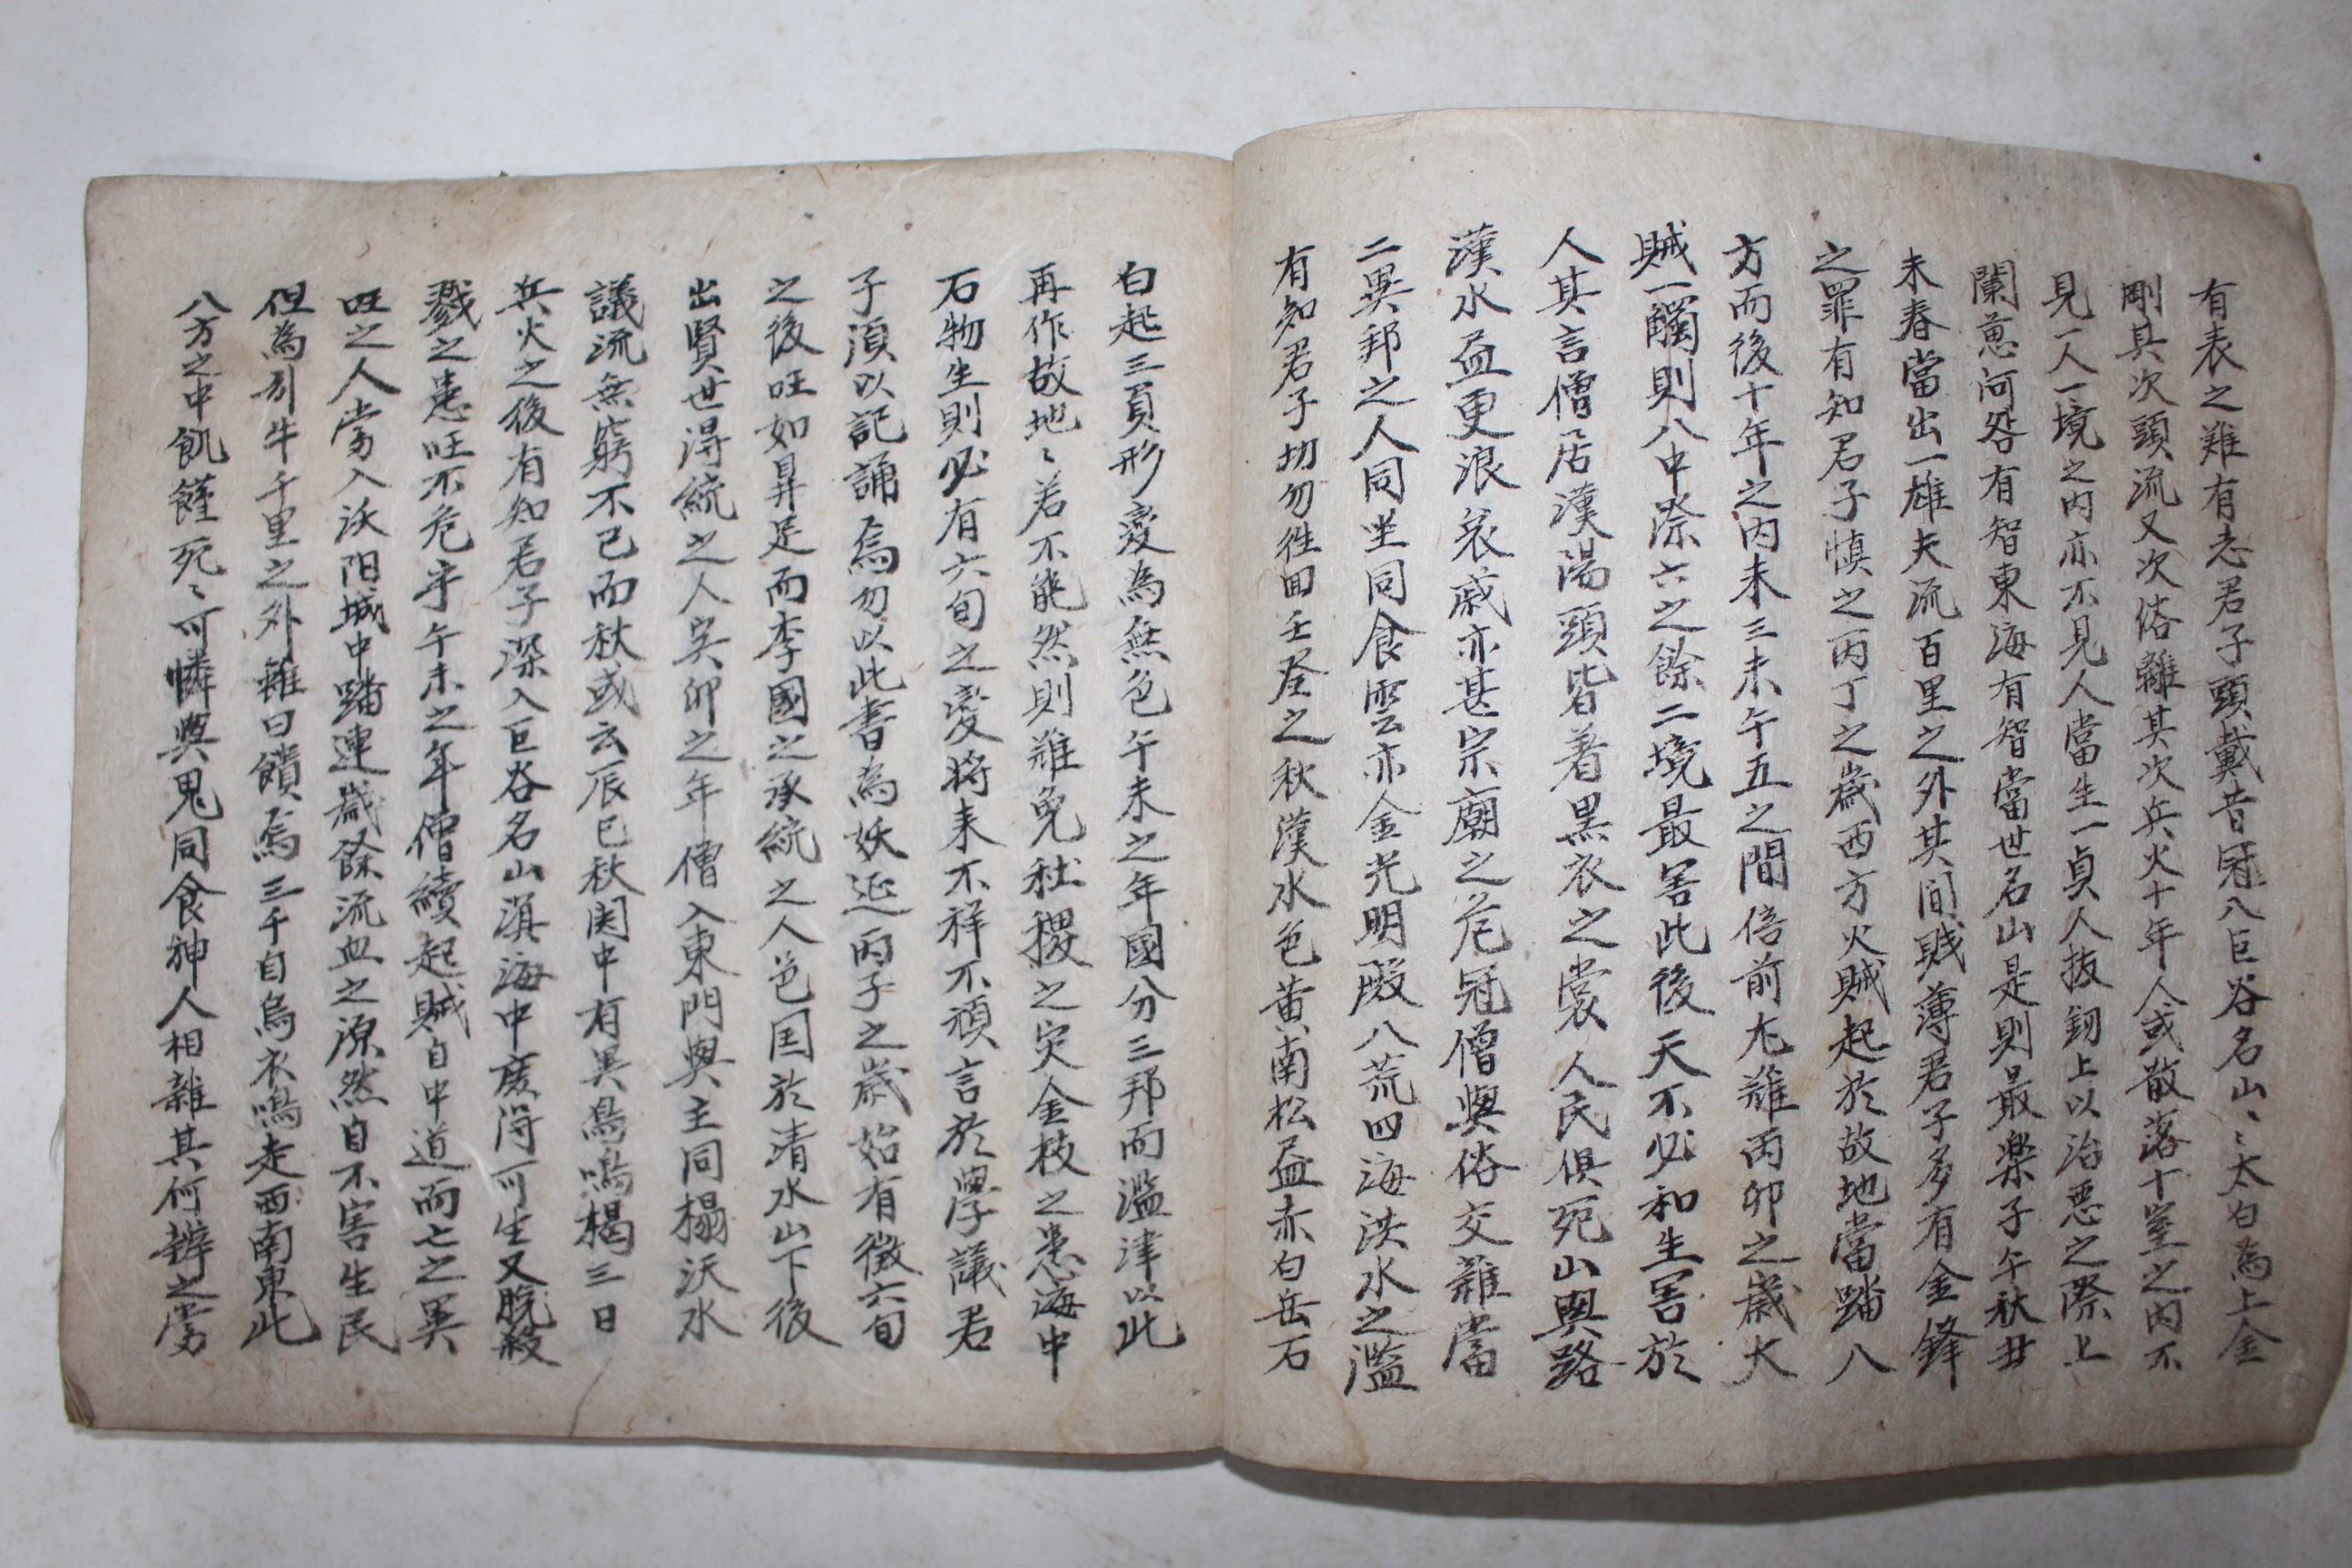 有表之難有志君子頭戴昔冠入巨谷名山〻太白為上金
剛其次頭流又次俗離其次兵火十年人或散落十室之内不
見一人一境之内亦不見人當生一眞人拔釼上以治悪之際上
闌蒽河咎有智東海有智當世名山是則最楽子午秋丑
未春當出一雄夫流百里之外其间賎薄君子多有金鋒
之罪有知君子慎之丙丁之歲西方火賊起於故地當踏八
方而後十年之内未三未午五之間倍前尢難丙卯之歲大
賊一觸則八中際六之餘二境最害此後天不必和生害於
人其言僧居漢湯頭皆著黒衣之裳人民俱死山與路
漢水益更浪哀戚亦甚宗廟之危冠僧與俗交難當
二異邦之人同坐同食雲亦金光明殿八荒四海洪水之濫
有知君子切勿徃回壬癸之秋漢水色黄南松益赤白岳石
白起三頁形変為無色午未之年國分三邦而濫津以此
再作故地〻若不能然則難免社稷之灾金枝之患海中
石物生則必有六旬之変将来不祥不頑言於學議君
子須以記誦焉勿以此書為妖延丙子之歲始有徵六旬
之後旺如昇是而李國之承統之人邑国於清水山下後
出賢世得統之人矣卯之年僧入東門與主同榻沃水
議流無窮不已而秋或云辰巳秋関中有異鳥鳴楬三日
兵火之後有知君子深入巨谷名山滇海中度得可生又脫殺
戮之患旺不危乎午未之年僧續起賊自中道而亡之異
旺之人當入沃阳城中踏連歲餘流血之源然自不害生民
但為引牛千里之外難曰饋焉三千自烏衣鳴走西南東此
八方之中飢饉死〻可憐與鬼同食神人相雜其何辨之當